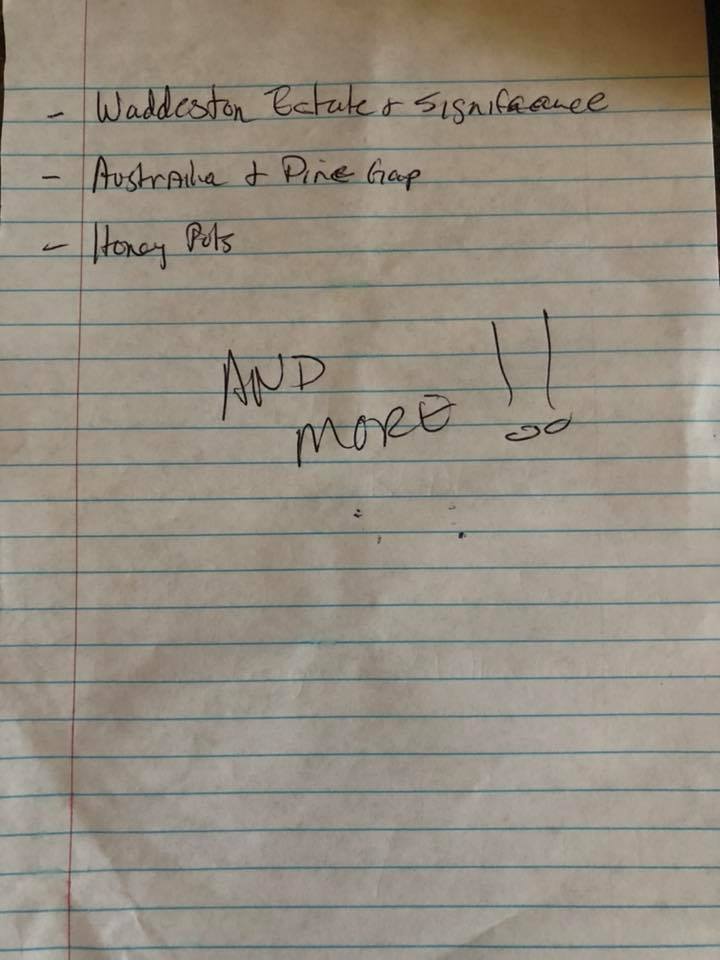 - Waddeston Estate & Significance
- Australia & Pine Gap
- Honey Pots
AND
MORE !!